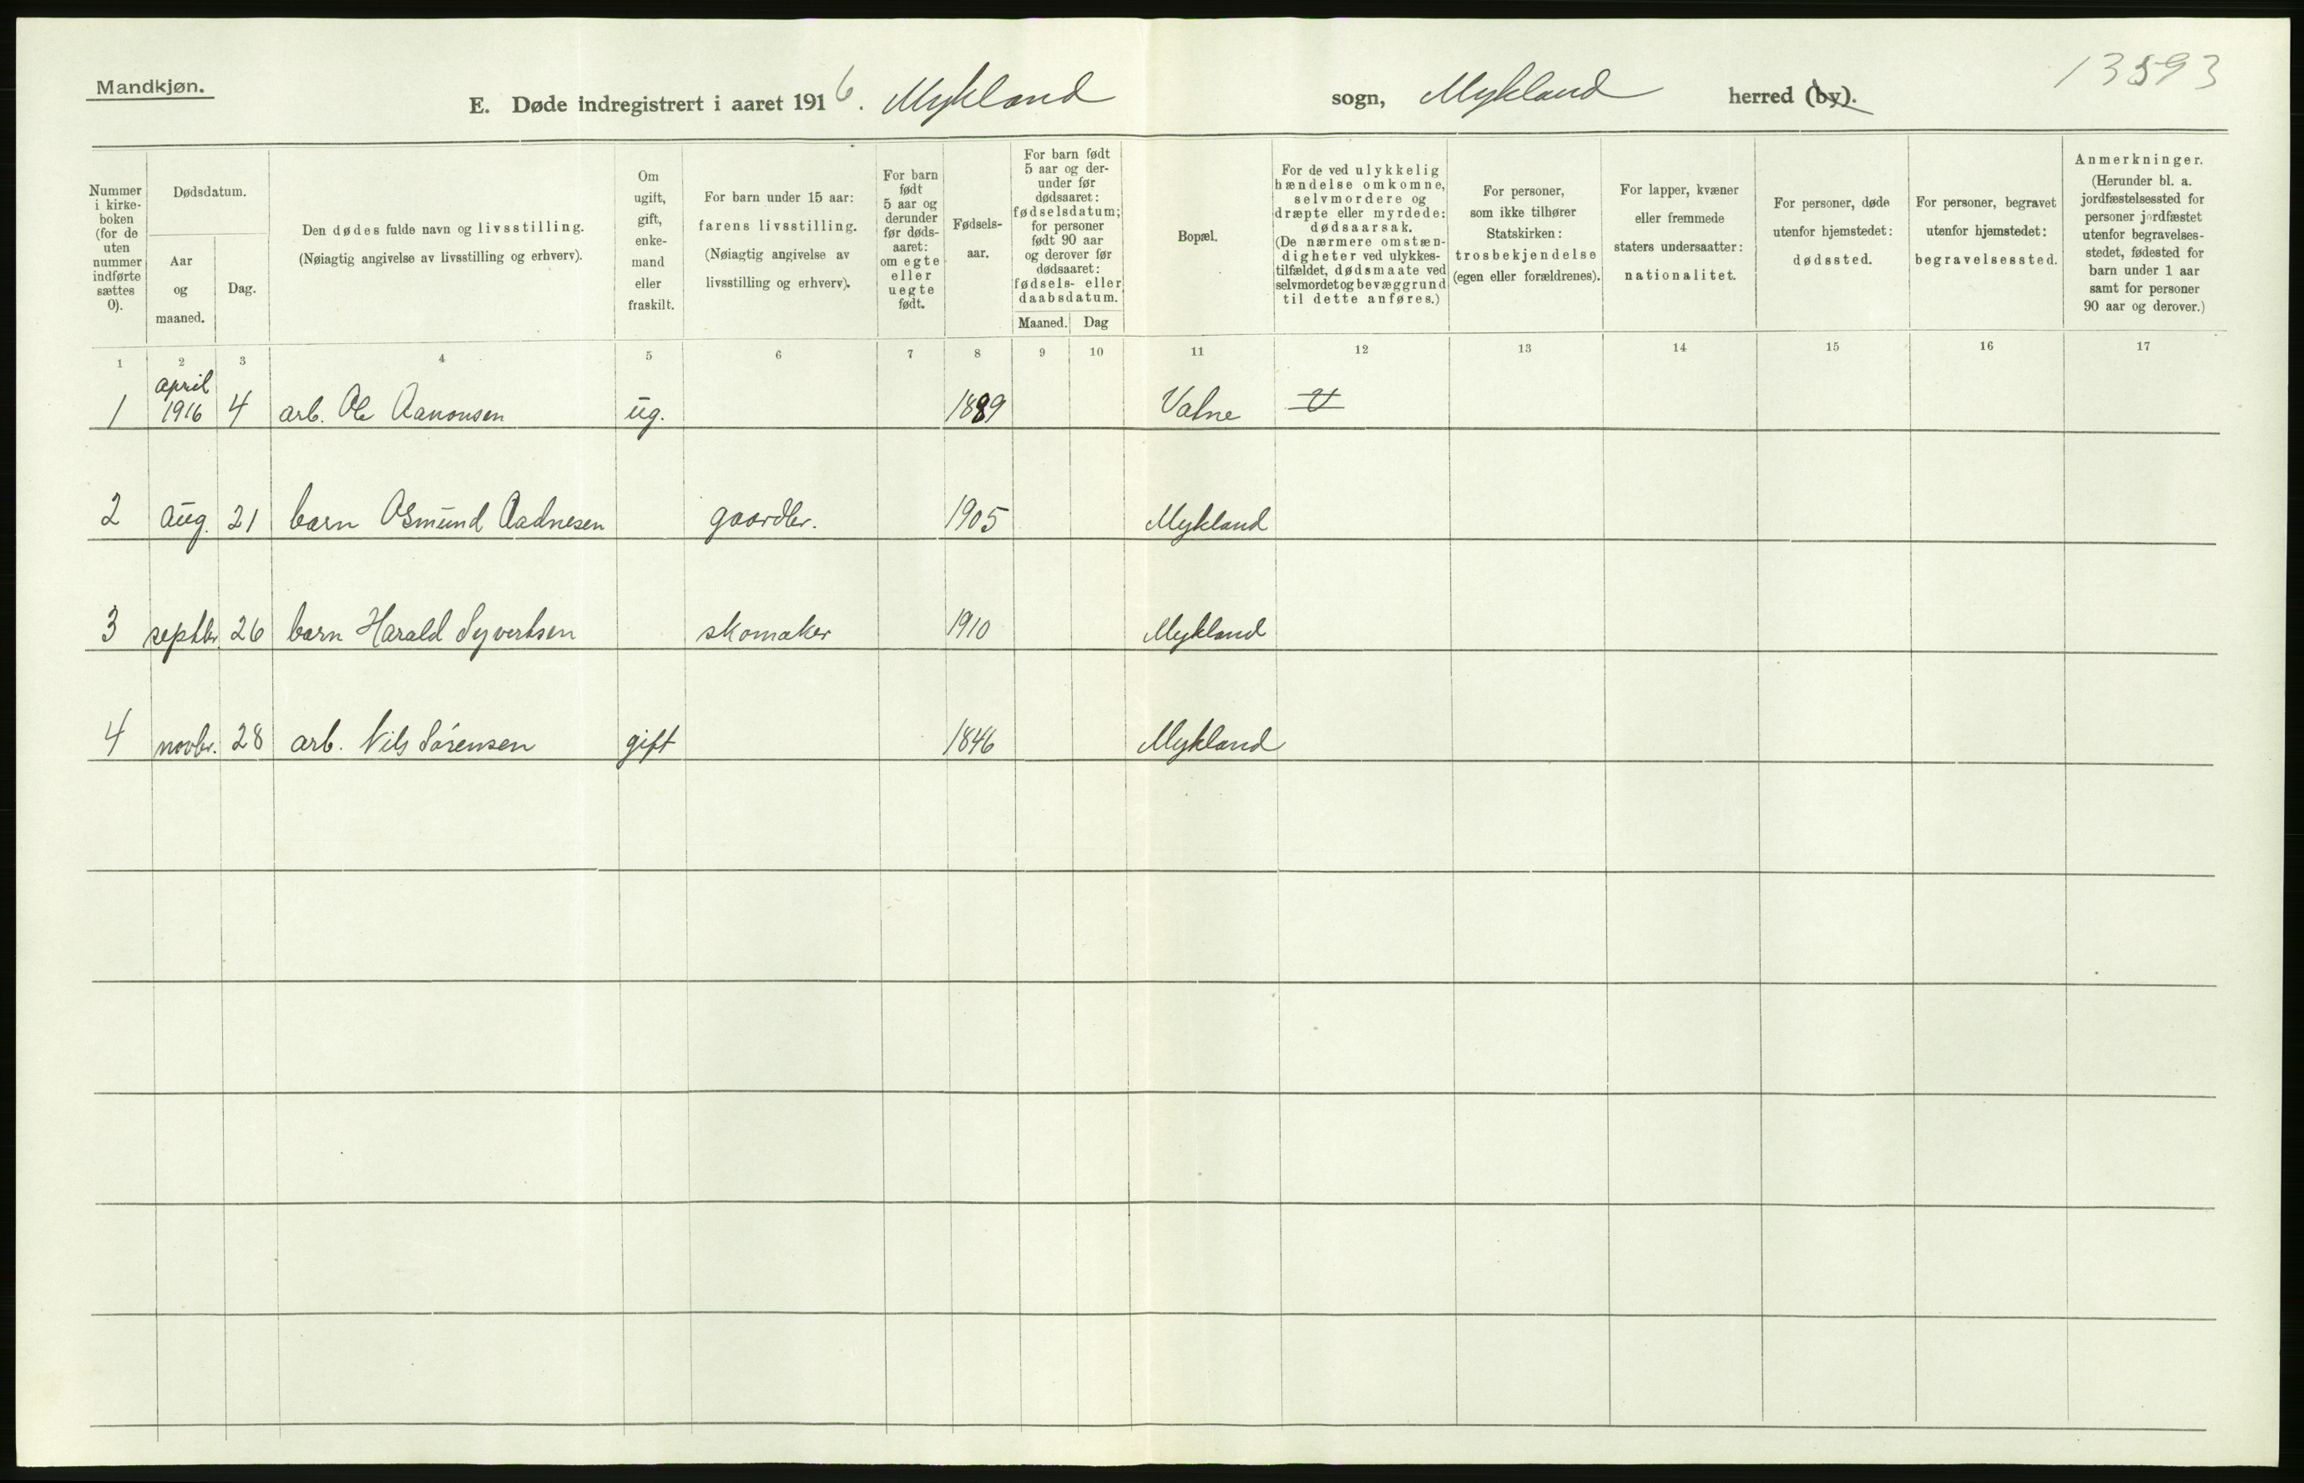 Mandkjøn.
13593
E. Døde indregistrert i aaret 1916. Mykland sogn, Mykland herred (by).
Nummer i kirke-boken (for de uten nummer indførte sættes 0).
Dødsdatum.
Aar og maaned.
Dag.
Den dødes fulde navn og livsstilling.
(Nøiagtig angivelse av livsstilling og erhverv).
Om ugift, gift, enke-mand eller fraskilt.
For barn under 15 aar:
farens livsstilling.
(Nøiagtig angivelse av livsstilling og erhverv).
For barn født 5 aar og derunder før døds-aaret: om egte eller uegte født.
Fødsels-aar.
For barn født 5 aar og der-under før dødsaaret: fødselsdatum; for personer født 90 aar og derover før dødsaaret: fødsels- eller daabsdatum.
Maaned. Dag
Bopæl.
For de ved ulykkelig hændelse omkomne, selvmordere og dræpte eller myrdede: dødsaarsak.
(De nærmere omstæn-digheter ved ulykkes-tilfældet, dødsmaate ved selvmordet og bevæggrund til dette anføres.)
For personer, som ikke tilhører Statskirken: trosbekjendelse (egen eller forældrenes).
For lapper, kvæner eller fremmede staters undersaatter: nationalitet.
For personer, døde utenfor hjemstedet: dødssted.
For personer, begravet utenfor hjemstedet: begravelsessted.
Anmerkninger.
(Herunder bl. a. jordfæstelsessted for personer jordfæstet utenfor begravelses-stedet, fødested for barn under 1 aar samt for personer 90 aar og derover.)
1 2 3 4 5 6 7 8 9 10 11 12 13 14 15 16 17
april
1 1916 4 arb. Ole Aanonsen ug. 1889 Vatne U
2 aug. 21 barn Osmund Aadnesen gaardbr. 1905 Mykland
3 septbr. 26 barn Harald Syvertsen skomaker 1910 Mykland
4 novbr. 28 arb. Nils Sørensen gift 1846 Mykland